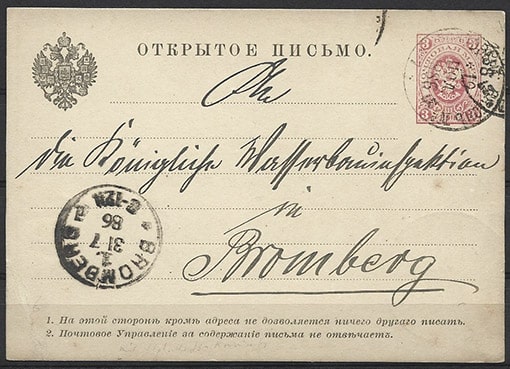 ОТКРЫТОЕ ПИСЬМО.
An
die Königliche Wasserbauinspektion
in
Bromberg
BROMBERG
1.
31 7
86
2-12N
1. На этой сторонѣ кромѣ адреса не дозволяется ничего другаго писать.
2. Почтовое Управленіе за содержаніе письма не отвѣчаетъ.